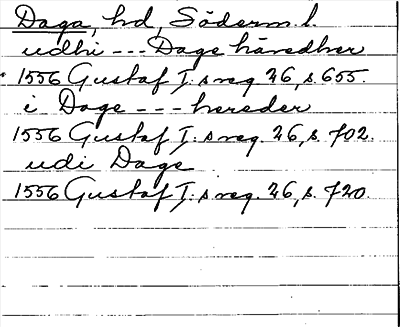 Daga, hd, Söderm. l.
udhi --- Dage häredher
1556 Gustaf I:s reg. 26, s. 655.
i Dage --- hereder
1556 Gustaf I:s reg. 26, s. 702.
udi Dage
1556 Gustaf I:s reg. 26, s. 720.